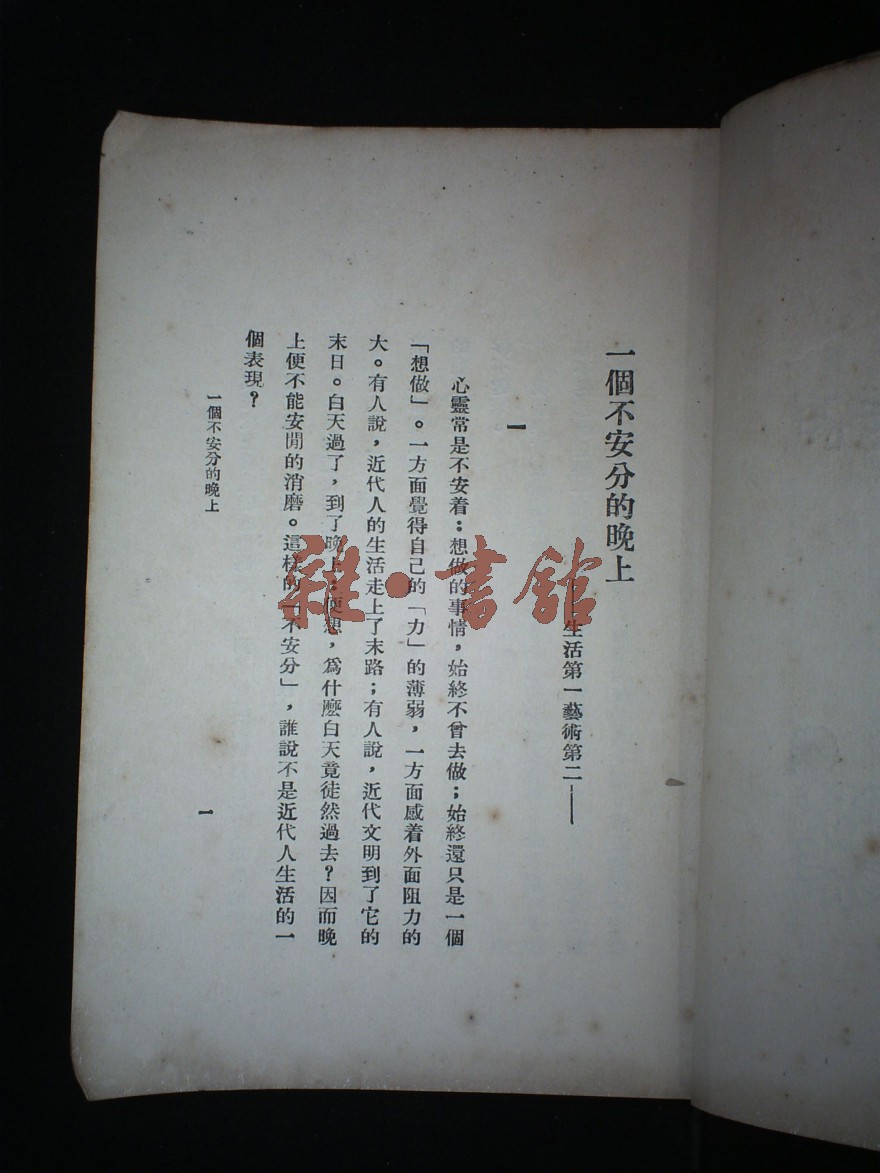 一個不安分的晚上
——生活第一藝術第二——
一
心靈常是不安着：想做的事情，始終不曾去做；始終還只是一個
「想做」。一方面覺得自己的「力」的薄弱，一方面感着外面阻力的
大。有人說，近代人的生活走上了末路；有人說，近代文明到了它的
末日。白天過了，到了晚上：便想，爲什麽白天竟徒然過去？因而晚
上便不能安閒的消磨。這樣的「不安分」，誰說不是近代人生活的一
個表現？
一個不安分的晚上
一
雜·書館